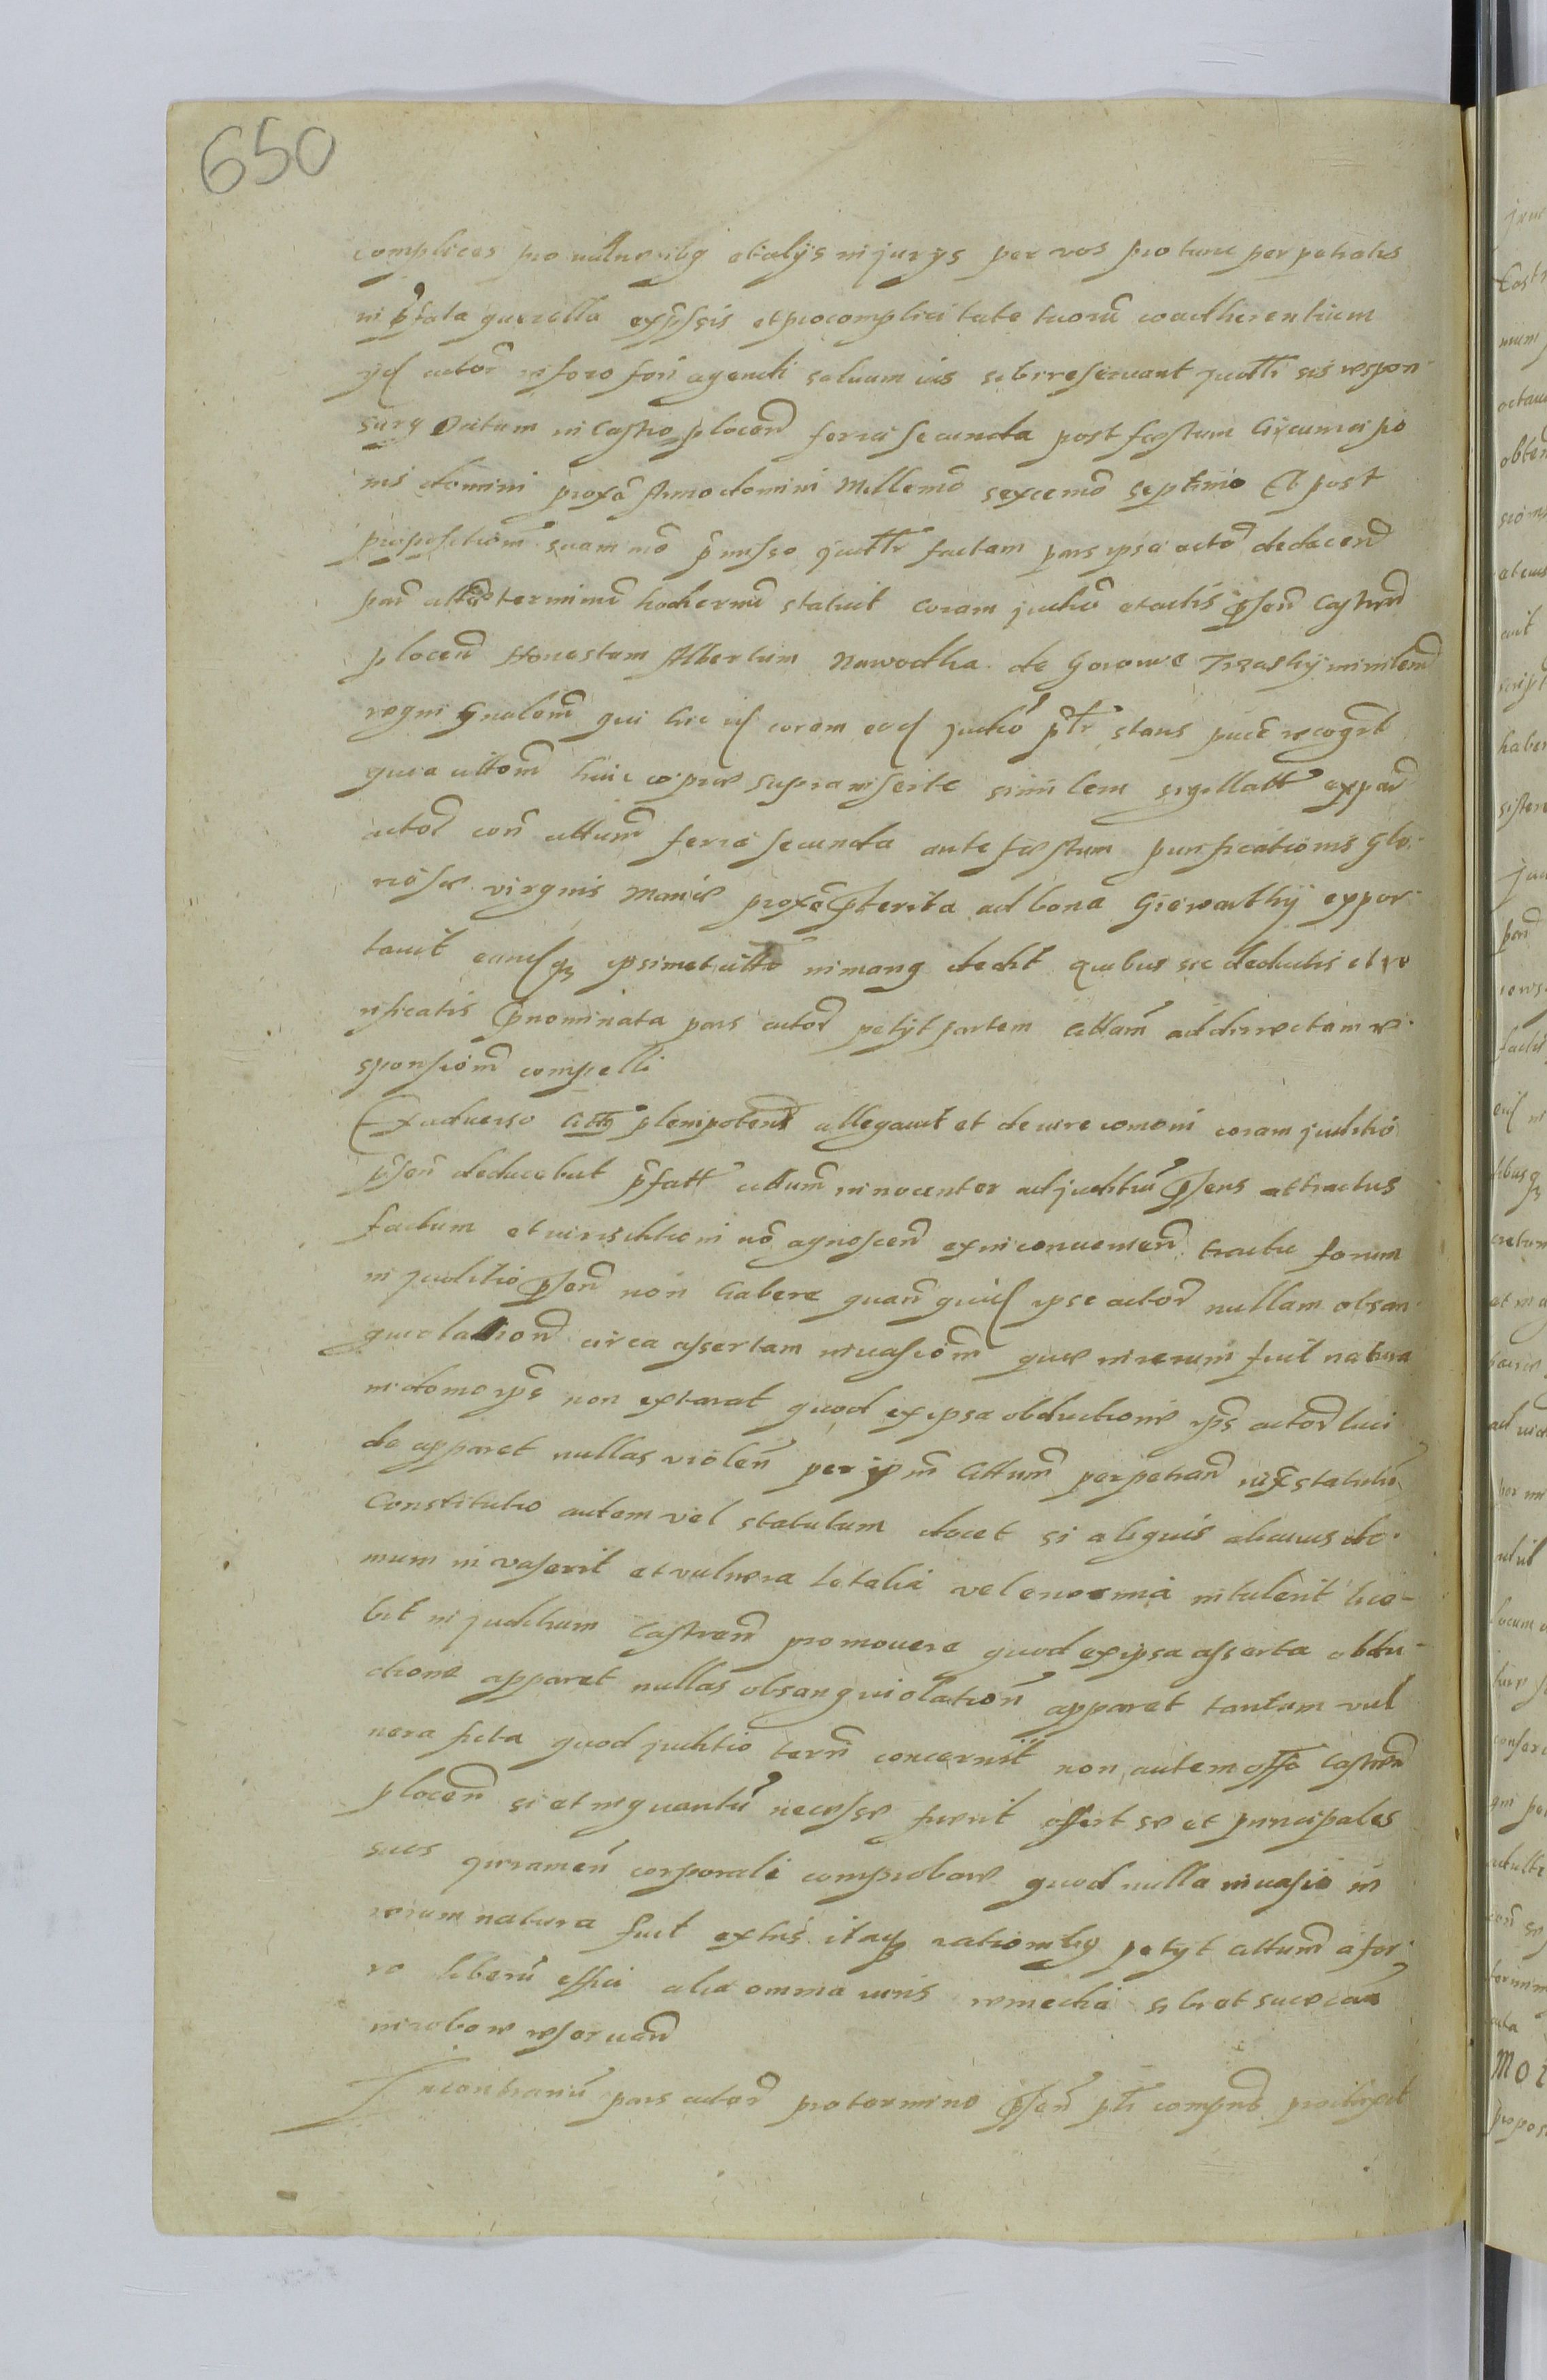 650
complices pro vulneribq etalijs injurijs per vos pro tunc perpetratis
in pfata querella expssis et pro complicitate tuorū coadherentium
ijd actor in foro fori agendi saluum ius sibi reseruant judtr sis respon
surq Datum in Castro plocen feria secunda post festum Circumcisio
nis domini proxa Anno domini Millemo sexcemo septimo Et post
propositiom suam mo pmisso judtr factam pars ipsa actor deducen
par terminū hodiernū statuit coram judio et actis psen Castren
plocen Honestum Albertum Nawodka de Gorowe Trzasky ministem
regni gnalem qui hic id coram eod judio ptr stans puce recogt
quia cittom huic copiae supra inserte similem sigillatt ex par
actor con cittum feria secunda ante festum purificationis glo
riosae virginis Mariae proxe pterita ad bona exporr
tauit eandqz ipsimet citto in mang dedit quibus sic deductis et ve
rificatis pnominata pars actor petijt partem cittam ad directam re
sponsiom compelli
Ex aduerso plenipotens allegauit et de iure comoni coram juditio
psen deducebat pfatt cittum innocenter ad juditiū psens attractus
factum et iurisditioni no agnoscen ex inconuenien tractu forum
in juditio psen non habere quan quid ipse actor nullam obsan
guolation circa assertam inuasiom quae in rerum fuit natura
in domo ips non extarat quod ex ipsa obductione ips actor luci
de apparet nullas violen per ipm cittum perpetran statutū
Constitutio autem vel statutum docet si aliquis alicuius do
mum in vaserit et vulnera letalia vel enormia intulerit lice
bit in juditium Castren promouere quod ex ipsa asserta obdu
ctione apparet nullas obsanguiolation apparet tantum vul
nera ficta quod juditio terr concernit non autem offo Castren
plocen si et inquantū necesse fuerit offert se et principales
suos juramen corporali comprobare quod nulla inuasio in
rerum natura fuit ex his itaqz rationibq petijt cittum a for
ro liberū effici alia omnia iuris remedia sibi et suae cau
in robore reseruan
In contrariū pars actor pro termino psen ptr compns